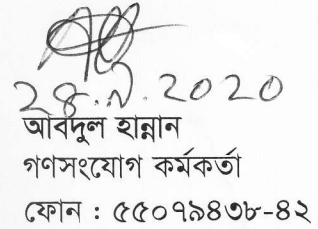 ২৪.৯.২০২০
আবদুল হান্নান
গণসংযোগ কর্মকর্তা
ফোন : ৫৫০৭৯৪৩৮-৪২